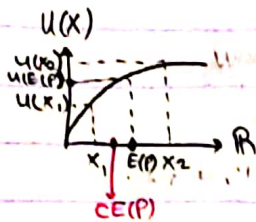 U(X)
U(X₂)
U(E(P))
U(X₁)
U
X₁ E(P) X₂ ℝ
CE(P)